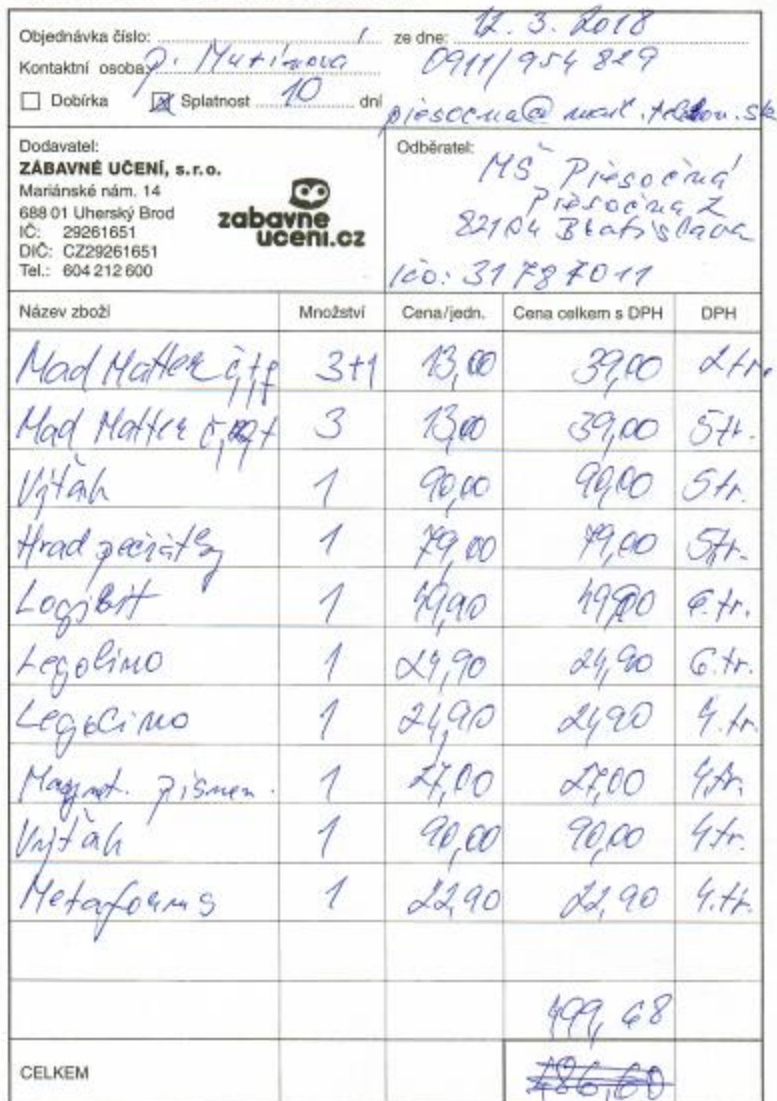 Objednávka číslo: ze dne: 12. 3. 2018
Kontaktní osoba: p. Mutínova 0911/954 829
Dobírka Splatnost 10 dní
piesocna@mail.t-com.sk
Dodavatel:
ZÁBAVNÉ UČENÍ, s.r.o.
Mariánské nám. 14
688 01 Uherský Brod
IČ: 29261651
DIČ: CZ29261651
Tel.: 604 212 600
zabavne
uceni.cz
Odběratel:
MŠ Piesočná
Piesočná 2
82104 Bratislava
IČO: 31787011
Název zboží Množství Cena/jedn. Cena celkem s DPH DPH
Mad Matter č,f,f 3+1 13,00 39,00 2 tr.
Mad Matter 3 13,00 39,00 5 tr.
Výťah 1 90,00 90,00 5 tr.
Hrad pečiatky 1 79,00 79,00 5 tr.
Logibit 1 49,90 6. tr.
Legolino 1 24,90 24,90 6. tr.
Legolino 1 24,90 24,90 4. tr.
Magnet. písmen. 1 27,00 27,00 4 tr.
Výťah 1 90,00 90,00 4 tr.
Metaforms 1 22,90 22,90 4. tr.
499,68
CELKEM 486,60